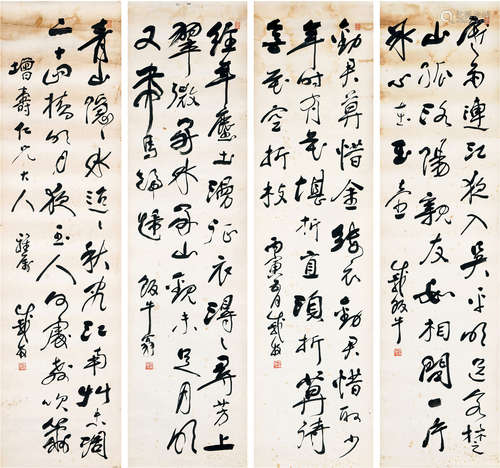 寒雨連江夜入吳平明送客楚
山孤洛陽親友如相問一片
冰心在玉壺 戴飯牛
勸君莫惜金縷衣勸君惜取少
年時有花堪折直須折莫待
無花空折枝 丙寅 月戴
經年塵土滿征衣得〻尋芳上
翠微好水好山觀未足月明
又帶馬 飯牛翁
青山隱〻水迢〻秋盡江南艸未凋
二十四橋明月夜玉人何處教吹簫
增壽仁兄大人 雅屬 戴